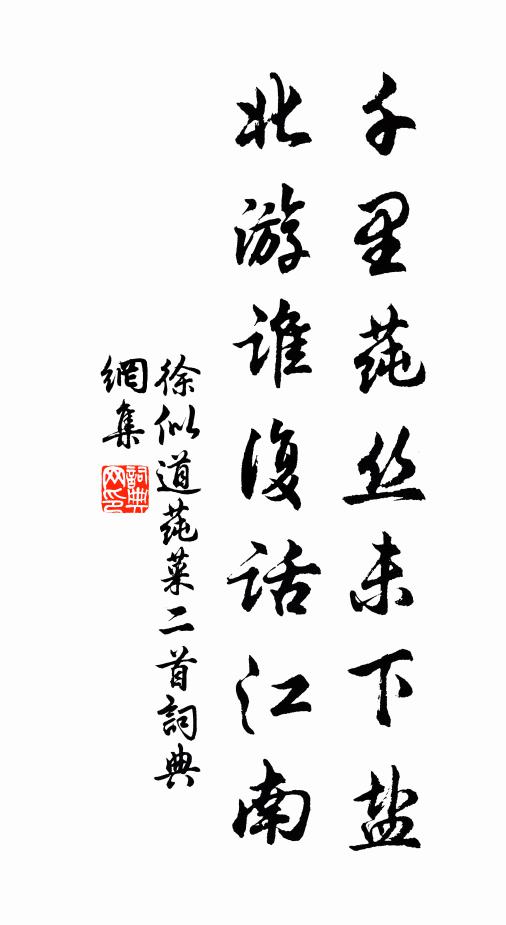 千里莼丝未下盐
北游谁复话江南
徐似道莼菜二首詞典
網集
詞典
网印